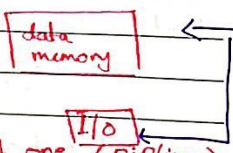 data
memory
I/O
one (